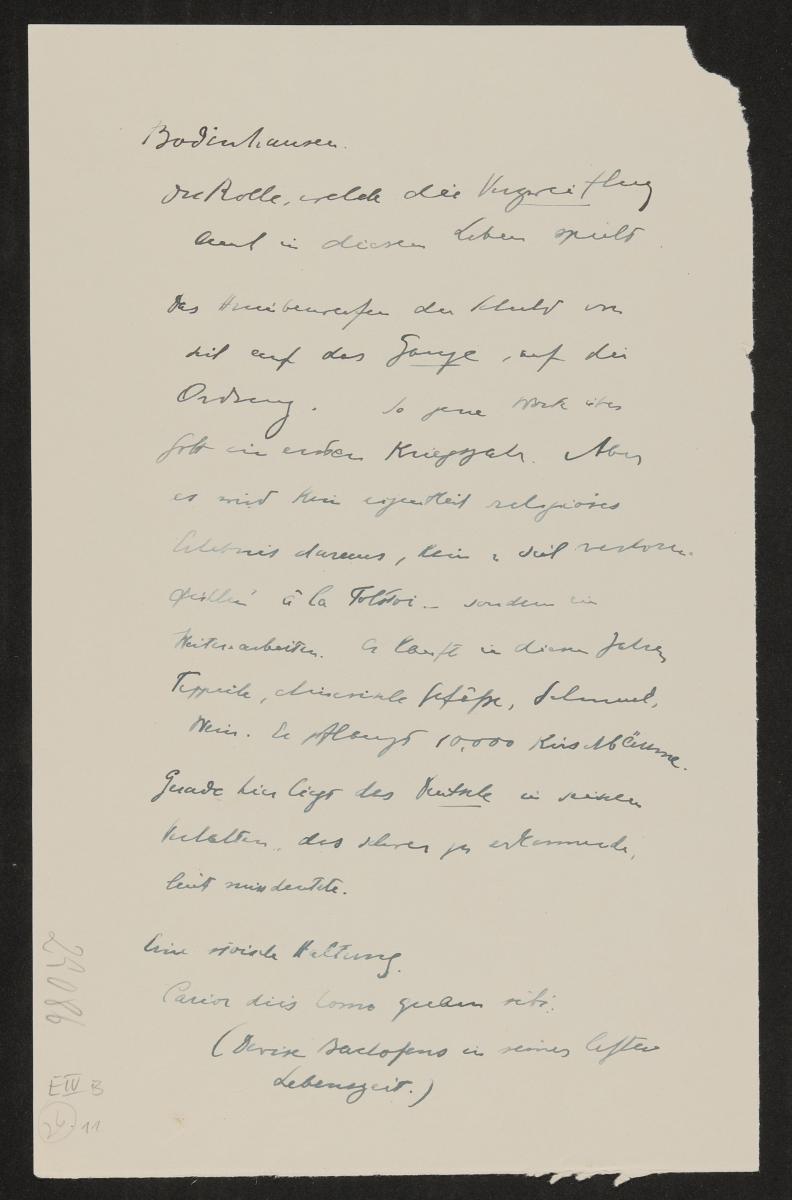 Bodenhausen.
Die Rolle, welche die Verzweiflung
in diesem Leben spielt
Das Hinüberwerfen der Schuld von
sich auf das Ganze, auf die
Ordnung. So jene Worte über
Gott im ersten Kriegsjahr. Aber
es wird kein eigentlich religiöses
Erlebnis daraus, kein
à la Tolstoi – sondern ein
Weiterarbeiten. Er kauft in diesen Jahren
Teppiche, chinesische Gefäße, Schmuck,
Wein. Er pflanzt 10,000 Kirschbäume.
Gerade hier liegt das Deutsche in seinem
Verhalten, das schwer zu erkennende,
leicht missdeutete.
Eine stoische Haltung.
Carior diis homo quam sibi.
(Devise Bachofens in seiner letzten
Lebenszeit.)
23086
E IV B
24.11